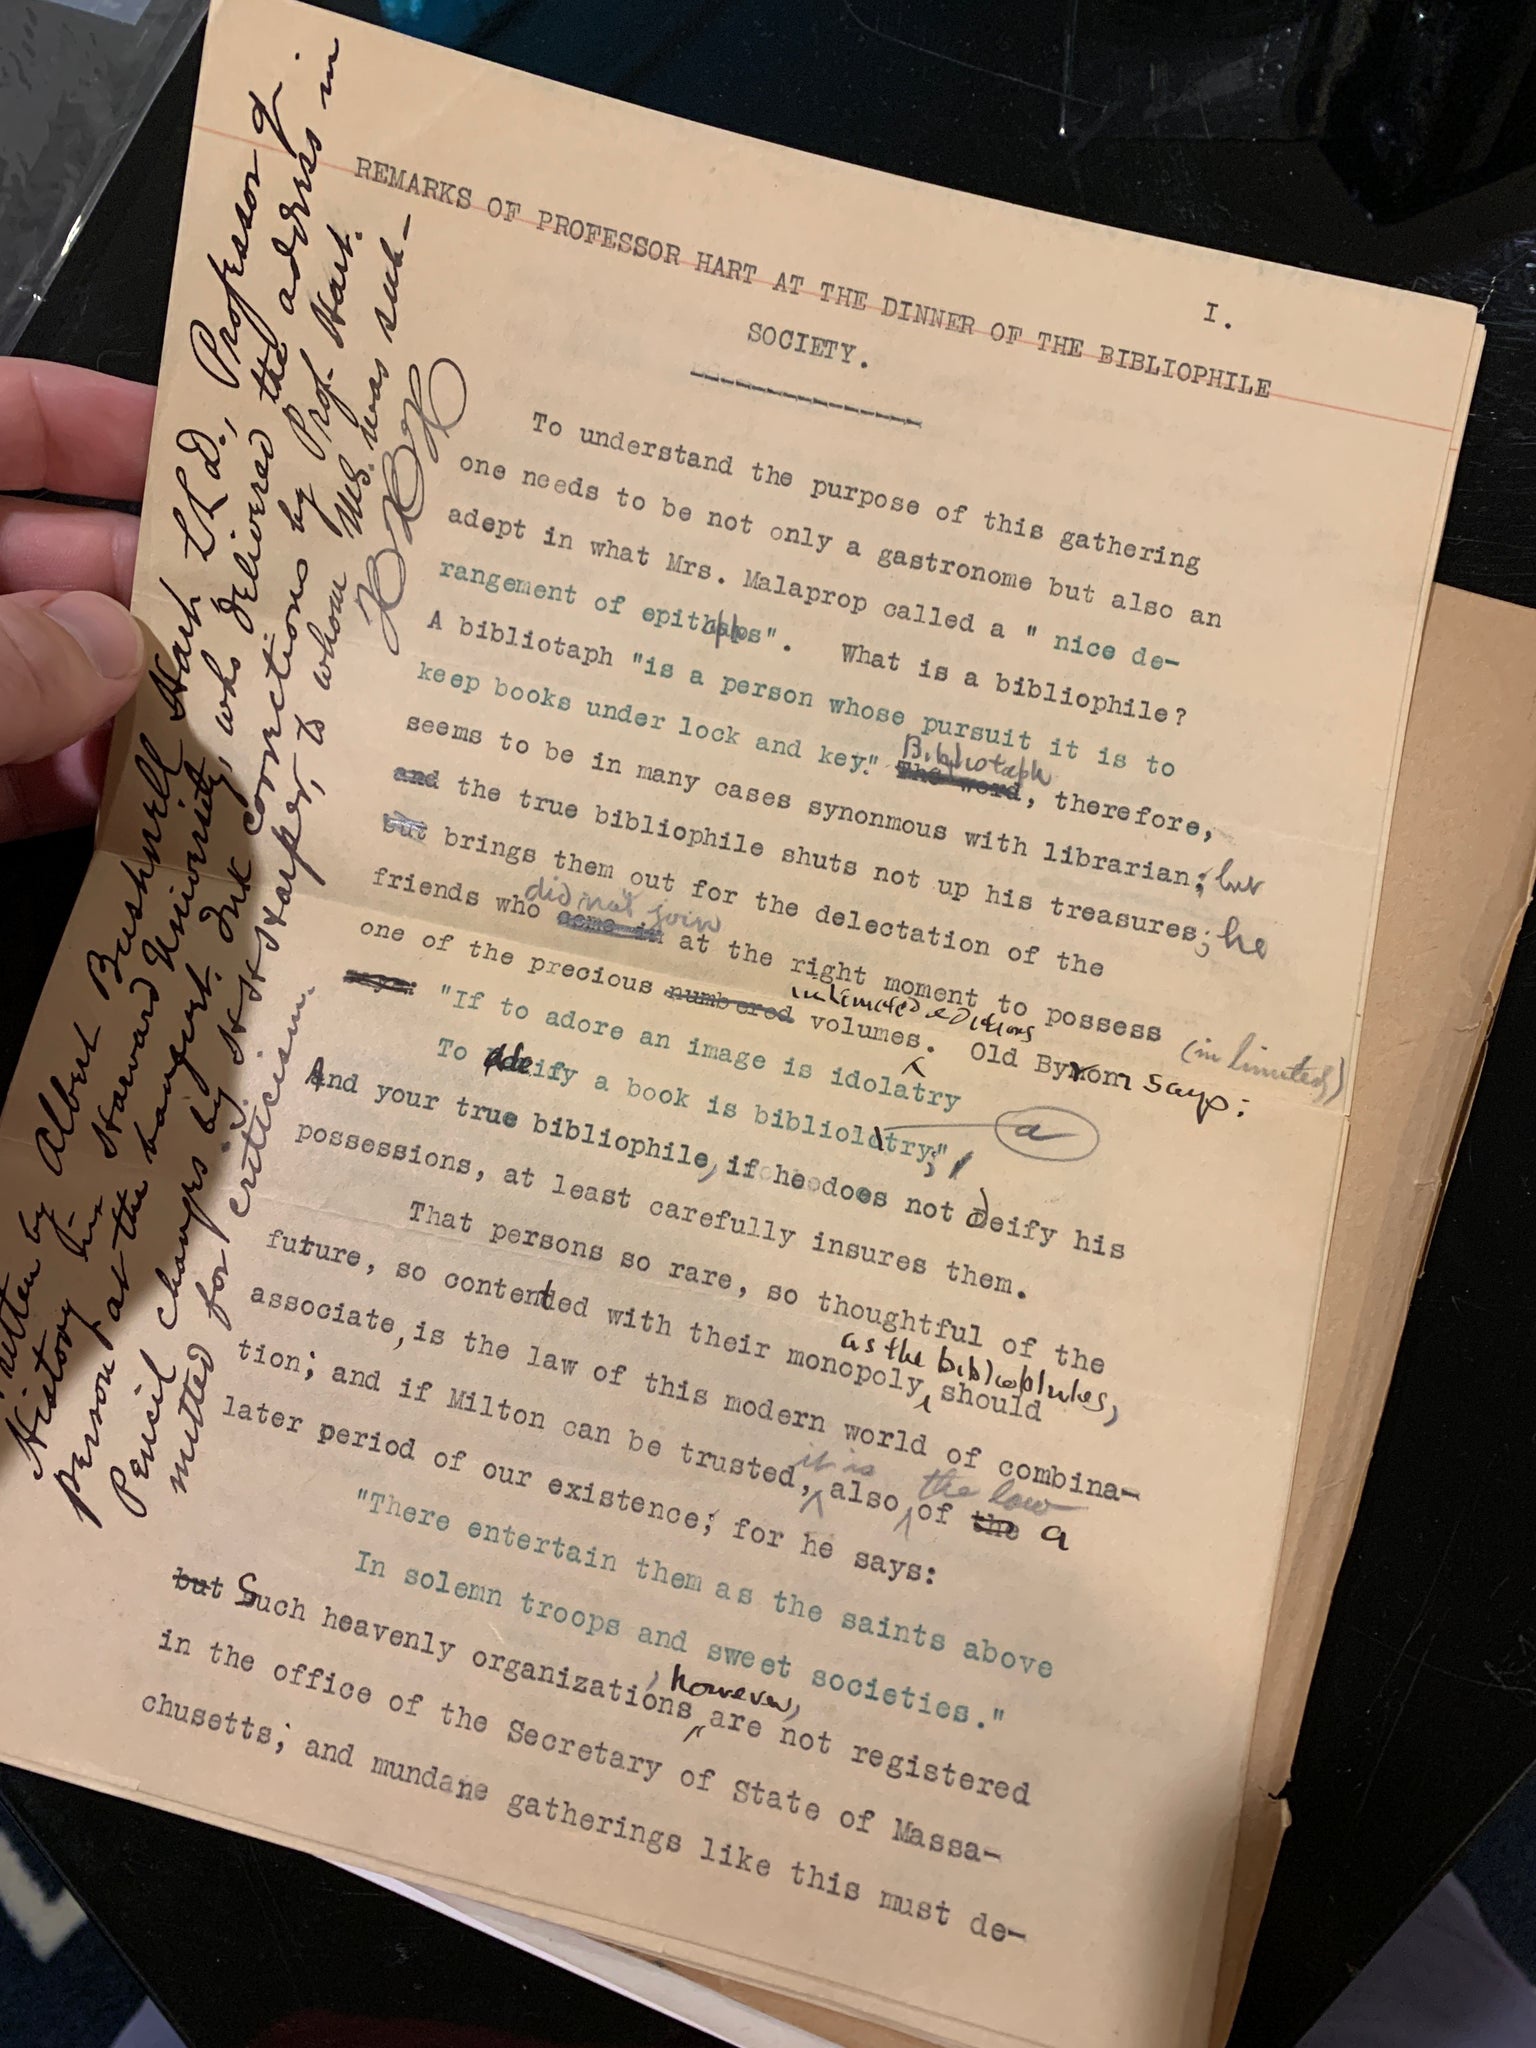 I.
REMARKS OF PROFESSOR HART AT THE DINNER OF THE BIBLIOPHILE
SOCIETY.
To understand the purpose of this gathering
one needs to be not only a gastronome but also an
adept in what Mrs. Malaprop called a " nice de-
rangement of epitaphs". What is a bibliophile?
A bibliotaph "is a person whose pursuit it is to
keep books under lock and key." The word, therefore,
Bibliotaph
seems to be in many cases synonmous with librarian; but
and the true bibliophile shuts not up his treasures; he
but brings them out for the delectation of the
friends who come in at the right moment to possess
did not join
one of the precious numbered volumes. Old Byrom says:
in limited editions
(in limited)
says:
"If to adore an image is idolatry
To deify a book is bibliolatry,"
a
And your true bibliophile, if he does not deify his
possessions, at least carefully insures them.
That persons so rare, so thoughtful of the
future, so contented with their monopoly, should
as the bibliophiles,
associate, is the law of this modern world of combina-
tion; and if Milton can be trusted, also of the a
it is the law
later period of our existence; for he says:
"There entertain them as the saints above
In solemn troops and sweet societies."
but Such heavenly organizations are not registered
, however,
in the office of the Secretary of State of Massa-
chusetts; and mundane gatherings like this must de-
by Albert Bushnell Hart LL D., Professor of
History in Harvard University, who delivered the address in
person at the banquet. Ink corrections by Prof. Hart.
Pencil changes by H H Harper, to whom MS. was sub-
mitted for criticism. HHH